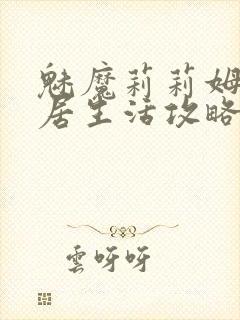 魅魔莉莉姆
居生活攻略
雲呀呀